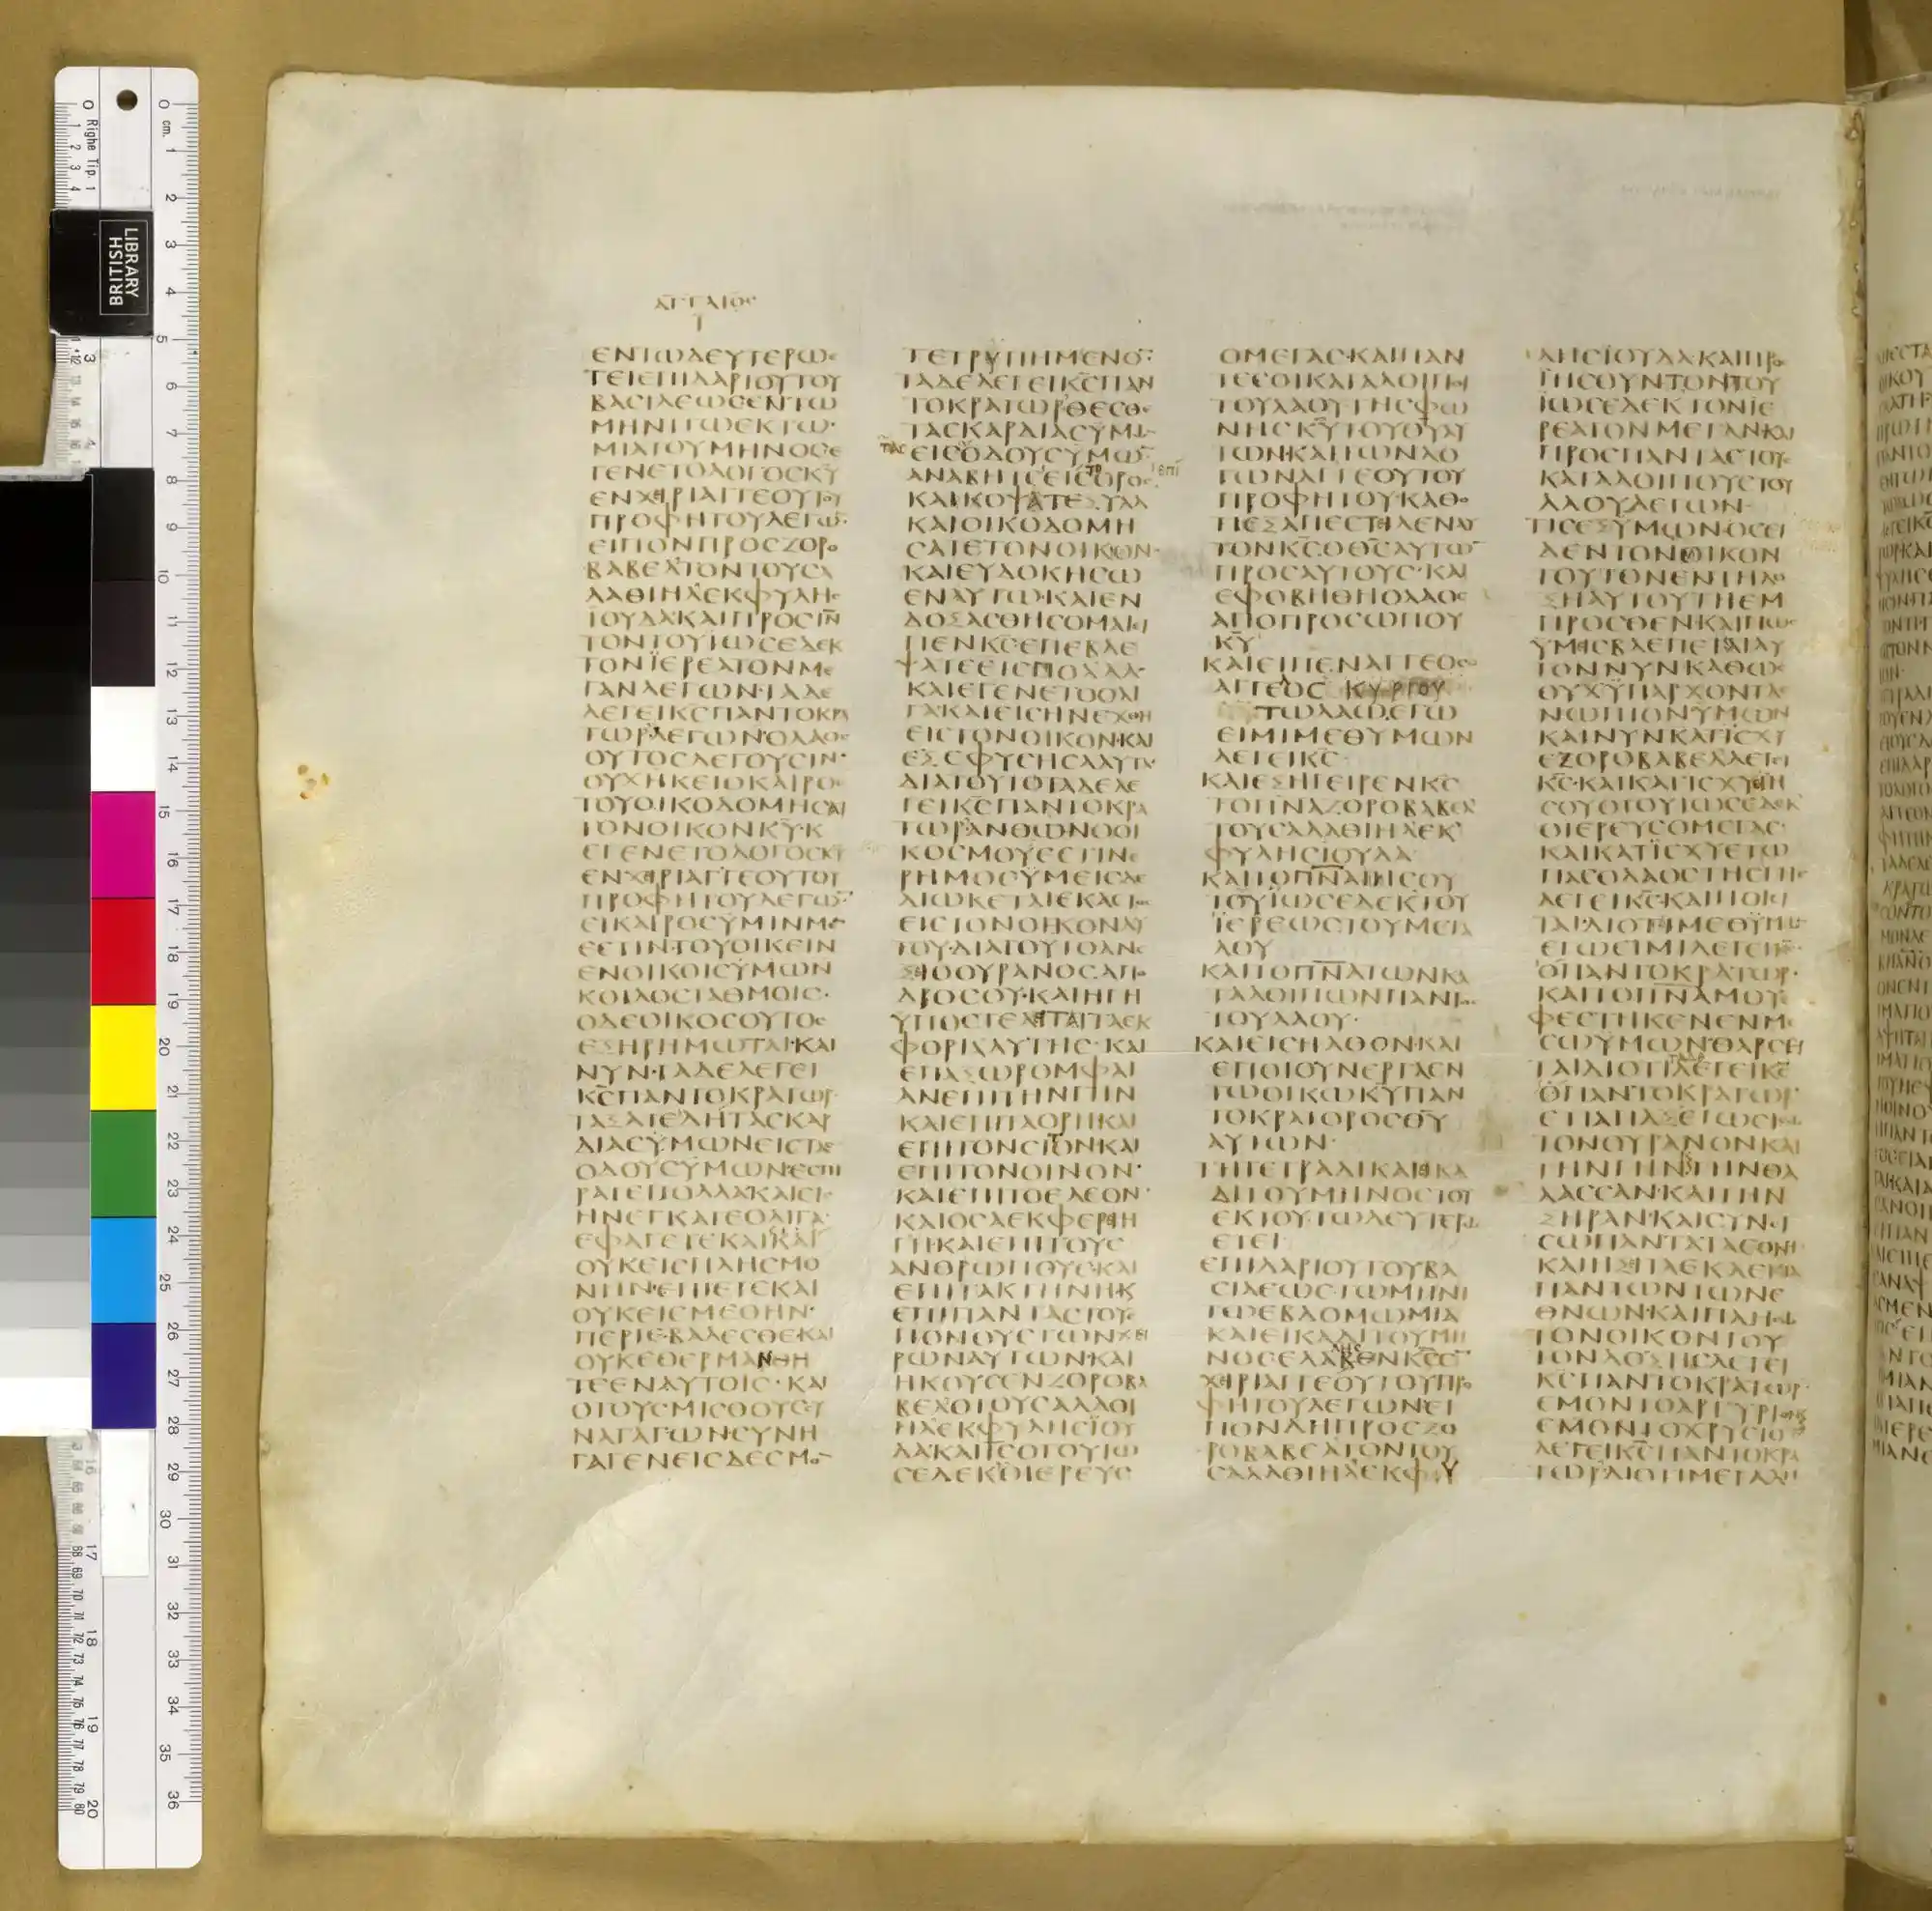 ΑΓΓΑΙΟϹ
Ι
ΕΝΤΩΔΕΥΤΕΡΩΕ
ΤΕΙΕΠΙΔΑΡΙΟΥΤΟΥ
ΒΑϹΙΛΕΩϹΕΝΤΩ
ΜΗΝΙΤΩΕΚΤΩ·
ΜΙΑΤΟΥΜΗΝΟϹΕ
ΓΕΝΕΤΟΛΟΓΟϹΚΥ
ΕΝΧΕΙΡΙΑΓΓΕΟΥΤΟΥ
ΠΡΟΦΗΤΟΥΛΕΓΩ
ΕΙΠΟΝΠΡΟϹΖΟΡΟ
ΒΑΒΕΛΤΟΝΤΟΥϹΑ
ΛΑΘΙΗΛΕΚΦΥΛΗϹ
ΙΟΥΔΑΚΑΙΠΡΟϹΙΝ
ΤΟΝΤΟΥΙΩϹΕΔΕΚ
ΤΟΝΪΕΡΕΑΤΟΝΜΕ
ΓΑΝΛΕΓΩΝ·ΤΑΔΕ
ΛΕΓΕΙΚϹΠΑΝΤΟΚΡΑ
ΤΩΡΛΕΓΩΝΟΛΑΟϹ
ΟΥΤΟϹΛΕΓΟΥϹΙΝ·
ΟΥΧΗΚΕΙΟΚΑΙΡΟϹ
ΤΟΥΟΙΚΟΔΟΜΗϹΑΙ
ΤΟΝΟΙΚΟΝΚΥ·Κ
ΕΓΕΝΕΤΟΛΟΓΟϹΚΥ
ΕΝΧΕΙΡΙΑΓΓΕΟΥΤΟΥ
ΠΡΟΦΗΤΟΥΛΕΓΩ
ΕΙΚΑΙΡΟϹΥΜΙΝΜΕ
ΕϹΤΙΝΤΟΥΟΙΚΕΙΝ
ΕΝΟΙΚΟΙϹΥΜΩΝ
ΚΟΙΛΟϹΤΑΘΜΟΙϹ·
ΟΔΕΟΙΚΟϹΟΥΤΟϹ
ΕΞΗΡΗΜΩΤΑΙ·ΚΑΙ
ΝΥΝ·ΤΑΔΕΛΕΓΕΙ
ΚϹΠΑΝΤΟΚΡΑΤΩΡ
ΤΑΞΑΤΕΔΗΤΑϹΚΑΡ
ΔΙΑϹΥΜΩΝΕΙϹΤΑϹ
ΟΔΟΥϹΥΜΩΝ·ΕϹΠΙ
ΡΑΤΕΠΟΛΛΑΚΑΙΕΙϹ
ΗΝΕΓΚΑΤΕΟΛΙΓΑ·
ΕΦΑΓΕΤΕΚΑΙΚΑΙ
ΟΥΚΕΙϹΠΛΗϹΜΟ
ΝΗΝ·ΕΠΙΕΤΕΚΑΙ
ΟΥΚΕΙϹΜΕΘΗΝ·
ΠΕΡΙΕΒΑΛΕϹΘΕΚΑΙ
ΟΥΚΕΘΕΡΜΑΝΘΗ
ΤΕΕΝΑΥΤΟΙϹ·ΚΑΙ
ΟΤΟΥϹΜΙϹΘΟΥϹϹΥ
ΝΑΓΑΓΩΝϹΥΝΗ
ΓΑΓΕΝΕΙϹΔΕϹΜΟ
ΤΕΤΡΥΠΗΜΕΝΟ
ΤΑΔΕΛΕΓΕΙΚϹΠΑΝ
ΤΟΚΡΑΤΩΡΘΕϹΘΕ
ΤΑϹΚΑΡΔΙΑϹΥΜΩ
ΤΑϹ
ΕΙϹΟΔΟΥϹΥΜΩ
ΑΝΑΒΗΤΕΕΙϹΟΡΟϹ
ΤΟ
ΕΠΙ
ΚΑΙΚΟΨΑΤΕΞΥΛΑ
ΚΑΙΟΙΚΟΔΟΜΗ
ϹΑΤΕΤΟΝΟΙΚΟΝ·
ΚΑΙΕΥΔΟΚΗϹΩ
ΕΝΑΥΤΩ·ΚΑΙΕΝ
ΔΟΞΑϹΘΗϹΟΜΑΙΕΙ
ΠΕΝΚϹΕΠΕΒΛΕ
ΨΑΤΕΕΙϹΠΟΛΛΑ·
ΚΑΙΕΓΕΝΕΤΟΟΛΙ
ΓΑΚΑΙΕΙϹΗΝΕΧΘΗ
ΕΙϹΤΟΝΟΙΚΟΝ·ΚΑΙ
ΕΞΕΦΥϹΗϹΑΑΥΤΑ·
ΔΙΑΤΟΥΤΟΤΑΔΕΛΕ
ΓΕΙΚϹΠΑΝΤΟΚΡΑ
ΤΩΡΑΝΘΩΝΟΟΙ
ΚΟϹΜΟΥΕϹΤΙΝΕ
ΡΗΜΟϹΥΜΕΙϹΔΕ
ΔΙΩΚΕΤΑΙΕΚΑϹΤΟϹ
ΕΙϹΤΟΝΟΙΚΟΝΑΥ
ΤΟΥ·ΔΙΑΤΟΥΤΟΑΝΕ
ΞΕΙΟΟΥΡΑΝΟϹΑΠΟ
ΔΡΟϹΟΥ·ΚΑΙΗΓΗ
ΥΠΟϹΤΕΛΕΙΤΑΙΤΑΕΚ
ΦΟΡΙΑΑΥΤΗϹ·ΚΑΙ
ΕΠΑΞΩΡΟΜΦΑΙ
ΑΝΕΠΙΤΗΝΓΗΝ
ΚΑΙΕΠΙΤΑΟΡΗΚΑΙ
ΕΠΙΤΟΝϹΙΤΟΝΚΑΙ
ΕΠΙΤΟΝΟΙΝΟΝ·
ΚΑΙΕΠΙΤΟΕΛΕΟΝ·
ΚΑΙΟϹΑΕΚΦΕΡΕΙΗ
ΓΗ·ΚΑΙΕΠΙΤΟΥϹ
ΑΝΘΡΩΠΟΥϹ·ΚΑΙ
ΕΠΙΤΑΚΤΗΝΗΚ
ΕΠΙΠΑΝΤΑϹΤΟΥϹ
ΠΟΝΟΥϹΤΩΝΧΕΙ
ΡΩΝΑΥΤΩΝ·ΚΑΙ
ΗΚΟΥϹΕΝΖΟΡΟΒΑ
ΒΕΛΟΤΟΥϹΑΛΑΘΙ
ΗΛΕΚΦΥΛΗϹΪΟΥ
ΔΑ·ΚΑΙΙϹΟΤΟΥΙΩ
ϹΕΔΕΚΟΙΕΡΕΥϹ
ΟΜΕΓΑϹ·ΚΑΙΠΑΝ
ΤΕϹΟΙΚΑΤΑΛΟΙΠΟΙ
ΤΟΥΛΑΟΥΤΗϹΦΩ
ΝΗϹΚΥΤΟΥΘΥΑΥ
ΤΩΝ·ΚΑΙΤΩΝΛΟ
ΓΩΝΑΓΓΕΟΥΤΟΥ
ΠΡΟΦΗΤΟΥ·ΚΑΘΟ
ΤΙΕΞΑΠΕϹΤΕΙΛΕΝΑΥ
ΤΟΝΚϹΟΘϹΑΥΤΩ
ΠΡΟϹΑΥΤΟΥϹ·ΚΑΙ
ΕΦΟΒΗΘΗΟΛΑΟϹ
ΑΠΟΠΡΟϹΩΠΟΥ
ΚΥ
ΚΑΙΕΙΠΕΝΑΓΓΕΟϹΟ
ΑΓΓΕΛΟϹ ΚΥΡΙΟΥ
ΤΩΛΑΩ·ΕΓΩ
ΕΙΜΙΜΕΘΥΜΩΝ
ΛΕΓΕΙΚϹ·
ΚΑΙΕΞΗΓΕΙΡΕΝΚϹ
ΤΟΠΝΑΖΟΡΟΒΑΒΕΛ
ΤΟΥϹΑΛΑΘΙΗΛΕΚ
ΦΥΛΗϹΙΟΥΔΑ
ΚΑΙΤΟΠΝΑΙΗϹΟΥ
ΤΟΥΪΩϹΕΔΕΚΤΟΥ
ΪΕΡΕΩϹΤΟΥΜΕΓΑ
ΛΟΥ
ΚΑΙΤΟΠΝΑΤΩΝΚΑ
ΤΑΛΟΙΠΩΝΠΑΝΤΟϹ
ΤΟΥΛΑΟΥ·
ΚΑΙΕΙϹΗΛΘΟΝ·ΚΑΙ
ΕΠΟΙΟΥΝΕΡΓΑΕΝ
ΤΩΟΙΚΩΚΥΠΑΝ
ΤΟΚΡΑΤΟΡΟϹΘΥ
ΑΥΤΩΝ·
ΤΗΤΕΤΡΑΔΙΚΑΙΕΙΚΑ
ΔΙΤΟΥΜΗΝΟϹΤΟΥ
ΕΚΤΟΥ·ΤΩΔΕΥΤΕΡΩ
ΕΤΕΙ
ΕΠΙΔΑΡΙΟΥΤΟΥΒΑ
ϹΙΛΕΩϹ·ΤΩΜΗΝΙ
ΤΩΕΒΔΟΜΩΜΙΑ
ΚΑΙΕΙΚΑΔΙΤΟΥΜΗ
ΝΟϹΕΛΑΛΗϹΕΝΚϹΕ
ΧΕΙΡΙΑΓΓΕΟΥΤΟΥΠΡΟ
ΦΗΤΟΥΛΕΓΩΝΕΙ
ΠΟΝΔΗΠΡΟϹΖΟ
ΡΟΒΑΒΕΛΤΟΝΤΟΥ
ϹΑΛΑΘΙΗΛΕΚΦΥ
ΛΗϹΪΟΥΔΑ·ΚΑΙΠΡΟϹ
ΙΗϹΟΥΝΤΟΝΤΟΥ
ΙΩϹΕΔΕΚΤΟΝΙΕ
ΡΕΑΤΟΝΜΕΓΑΝΚΑΙ
ΠΡΟϹΠΑΝΤΑϹΤΟΥϹ
ΚΑΤΑΛΟΙΠΟΥϹΤΟΥ
ΛΑΟΥΛΕΓΩΝ·
ΤΙϹΕΞΥΜΩΝΟϹΕΙ
ΔΕΝΤΟΝΟΙΚΟΝ
ΤΟΥΤΟΝΕΝΤΗΔΟ
ΞΗΑΥΤΟΥΤΗΕΜ
ΠΡΟϹΘΕΝΚΑΙΠΩϹ
ΥΜΕΙϹΒΛΕΠΕΤΑΙΑΥ
ΤΟΝΝΥΝΚΑΘΩϹ
ΟΥΧΫΠΑΡΧΟΝΤΑΕ
ΝΩΠΙΟΝΥΜΩΝ
ΚΑΙΝΥΝΚΑΤΙϹΧΥ
ΕΖΟΡΟΒΑΒΕΛΛΕΓΕΙ
ΚϹ·ΚΑΙΚΑΤΙϹΧΥΕΙΗ
ϹΟΥΟΤΟΥΙΩϹΕΔΕΚ
ΟΙΕΡΕΥϹΟΜΕΓΑϹ·
ΚΑΙΚΑΤΙϹΧΥΕΤΩ
ΠΑϹΟΛΑΟϹΤΗϹΓΗϹ
ΛΕΓΕΙΚϹ·ΚΑΙΠΟΙΕΙ
ΤΑΙ·ΔΙΟΤΙΜΕΘΥΜΩ
ΕΓΩΕΙΜΙΛΕΓΕΙΚϹ
ΟΠΑΝΤΟΚΡΑΤΩΡ·
ΚΑΙΤΟΠΝΑΜΟΥΕ
ΦΕϹΤΗΚΕΝΕΝΜΕ
ϹΩΥΜΩΝΘΑΡϹΕΙ
ΤΑΙΔΙΟΤΙΤΑΔΕΛΕΓΕΙΚϹ
ΟΠΑΝΤΟΚΡΑΤΩΡ
ΕΤΙΑΠΑΞΕΓΩϹΙϹΩ
ΤΟΝΟΥΡΑΝΟΝΚΑΙ
ΤΗΝΓΗΝΚΤΗΝΘΑ
ΛΑϹϹΑΝ·ΚΑΙΤΗΝ
ΞΗΡΑΝ·ΚΑΙϹΥΝϹΙ
ϹΩΠΑΝΤΑΤΑΕΘΝΗ
ΚΑΙΗΞΕΙΤΑΕΚΛΕΚΤΑ
ΠΑΝΤΩΝΤΩΝΕ
ΘΝΩΝ·ΚΑΙΠΛΗϹΩ
ΤΟΝΟΙΚΟΝΤΟΥ
ΤΟΝΔΟΞΗϹΛΕΓΕΙ
ΚϹΠΑΝΤΟΚΡΑΤΩΡ·
ΕΜΟΝΤΟΑΡΓΥΡΙΟΝΚ
ΕΜΟΝΤΟΧΡΥϹΙΟ
ΛΕΓΕΙΚϹΠΑΝΤΟΚΡΑ
ΤΩΡΔΙΟΤΙΜΕΓΑΛΗ